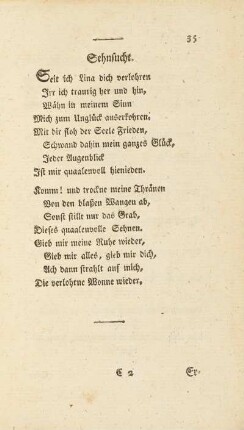 35
Sehnsucht.
Seit ich Lina dich verlohren
Irr ich traurig her und hin,
Wähn in meinem Sinn
Mich zum Unglück auserkohren.
Mit dir floh der Seele Frieden,
Schwand dahin mein ganzes Glück,
Jeder Augenblick
Ist mir quaalenvoll hienieden.
Komm! und trockne meine Thränen
Von den blaßen Wangen ab,
Sonst stillt nur das Grab,
Dieses quaalenvolle Sehnen.
Gieb mir meine Ruhe wieder,
Gieb mir alles, gieb mir dich,
Ach dann strahlt auf mich,
Die verlohrne Wonne wieder,
C 2 Er-